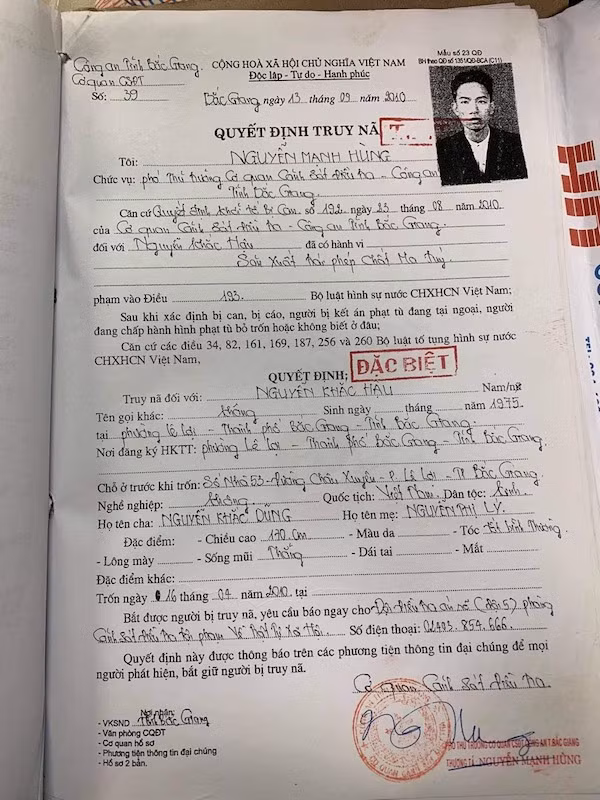 Mẫu số 23 QĐ
BH theo QĐ số 1351/QĐ-BCA (C11)
Công an Tỉnh Bắc Giang
Cơ quan CSĐT
Số: 39
CỘNG HOÀ XÃ HỘI CHỦ NGHĨA VIỆT NAM
Độc lập - Tự do - Hạnh phúc
Bắc Giang ngày 13 tháng 09 năm 2010
QUYẾT ĐỊNH TRUY NÃ
Tôi: NGUYỄN MẠNH HÙNG
Chức vụ: phó Thủ trưởng Cơ quan Cảnh sát Điều tra - Công an
Tỉnh Bắc Giang.
Căn cứ Quyết định khởi tố Bị Can số 192 ngày 23 tháng 08 năm 2010
của Cơ quan Cảnh sát Điều tra - Công an Tỉnh Bắc Giang.
đối với Nguyễn Khắc Hậu đã có hành vi
Sản xuất trái phép Chất Ma Túy
phạm vào Điều 193. Bộ luật hình sự nước CHXHCN Việt Nam;
Sau khi xác định bị can, bị cáo, người bị kết án phạt tù đang tại ngoại, người
đang chấp hành hình phạt tù bỏ trốn hoặc không biết ở đâu;
Căn cứ các điều 34, 82, 161, 169, 187, 256 và 260 Bộ luật tố tụng hình sự nước
CHXHCN Việt Nam,
QUYẾT ĐỊNH: ĐẶC BIỆT
Truy nã đối với: NGUYỄN KHẮC HẬU Nam/nữ
Tên gọi khác: không Sinh ngày tháng năm 1975
tại phường Lê Lợi - Thành phố Bắc Giang - Tỉnh Bắc Giang.
Nơi đăng ký HKTT: phường Lê Lợi - Thành phố Bắc Giang - Tỉnh Bắc Giang.
Chỗ ở trước khi trốn: Số Nhà 53 - Đường Châu Xuyên - P. Lê Lợi - TP Bắc Giang.
Nghề nghiệp: không Quốc tịch: Việt Nam. Dân tộc: Kinh.
Họ tên cha: NGUYỄN KHẮC DŨNG Họ tên mẹ: NGUYỄN THỊ LÝ.
Đặc điểm: - Chiều cao 170 cm - Màu da - Tóc tết bình Thường.
- Lông mày - Sống mũi Thẳng - Dái tai - Mắt
Đặc điểm khác:
Trốn ngày 16 tháng 04 năm 2010 tại
Bắt được người bị truy nã, yêu cầu báo ngay cho Đội Điều tra án số (đội 5) phòng
Cảnh sát Điều tra tội phạm Về Trật Tự Xã Hội. Số điện thoại: 02403. 854. 666.
Quyết định này được thông báo trên các phương tiện thông tin đại chúng để mọi
người phát hiện, bắt giữ người bị truy nã.
Cơ Quan Cảnh Sát Điều Tra
Nơi nhận:
- VKSND Tỉnh Bắc Giang
- Văn phòng CQĐT
- Cơ quan hồ sơ
- Phương tiện thông tin đại chúng
- Hồ sơ 2 bản.
PHÓ THỦ TRƯỞNG CƠ QUAN CSĐT CÔNG AN T.BẮC GIANG
TRUNG TÁ NGUYỄN MẠNH HÙNG